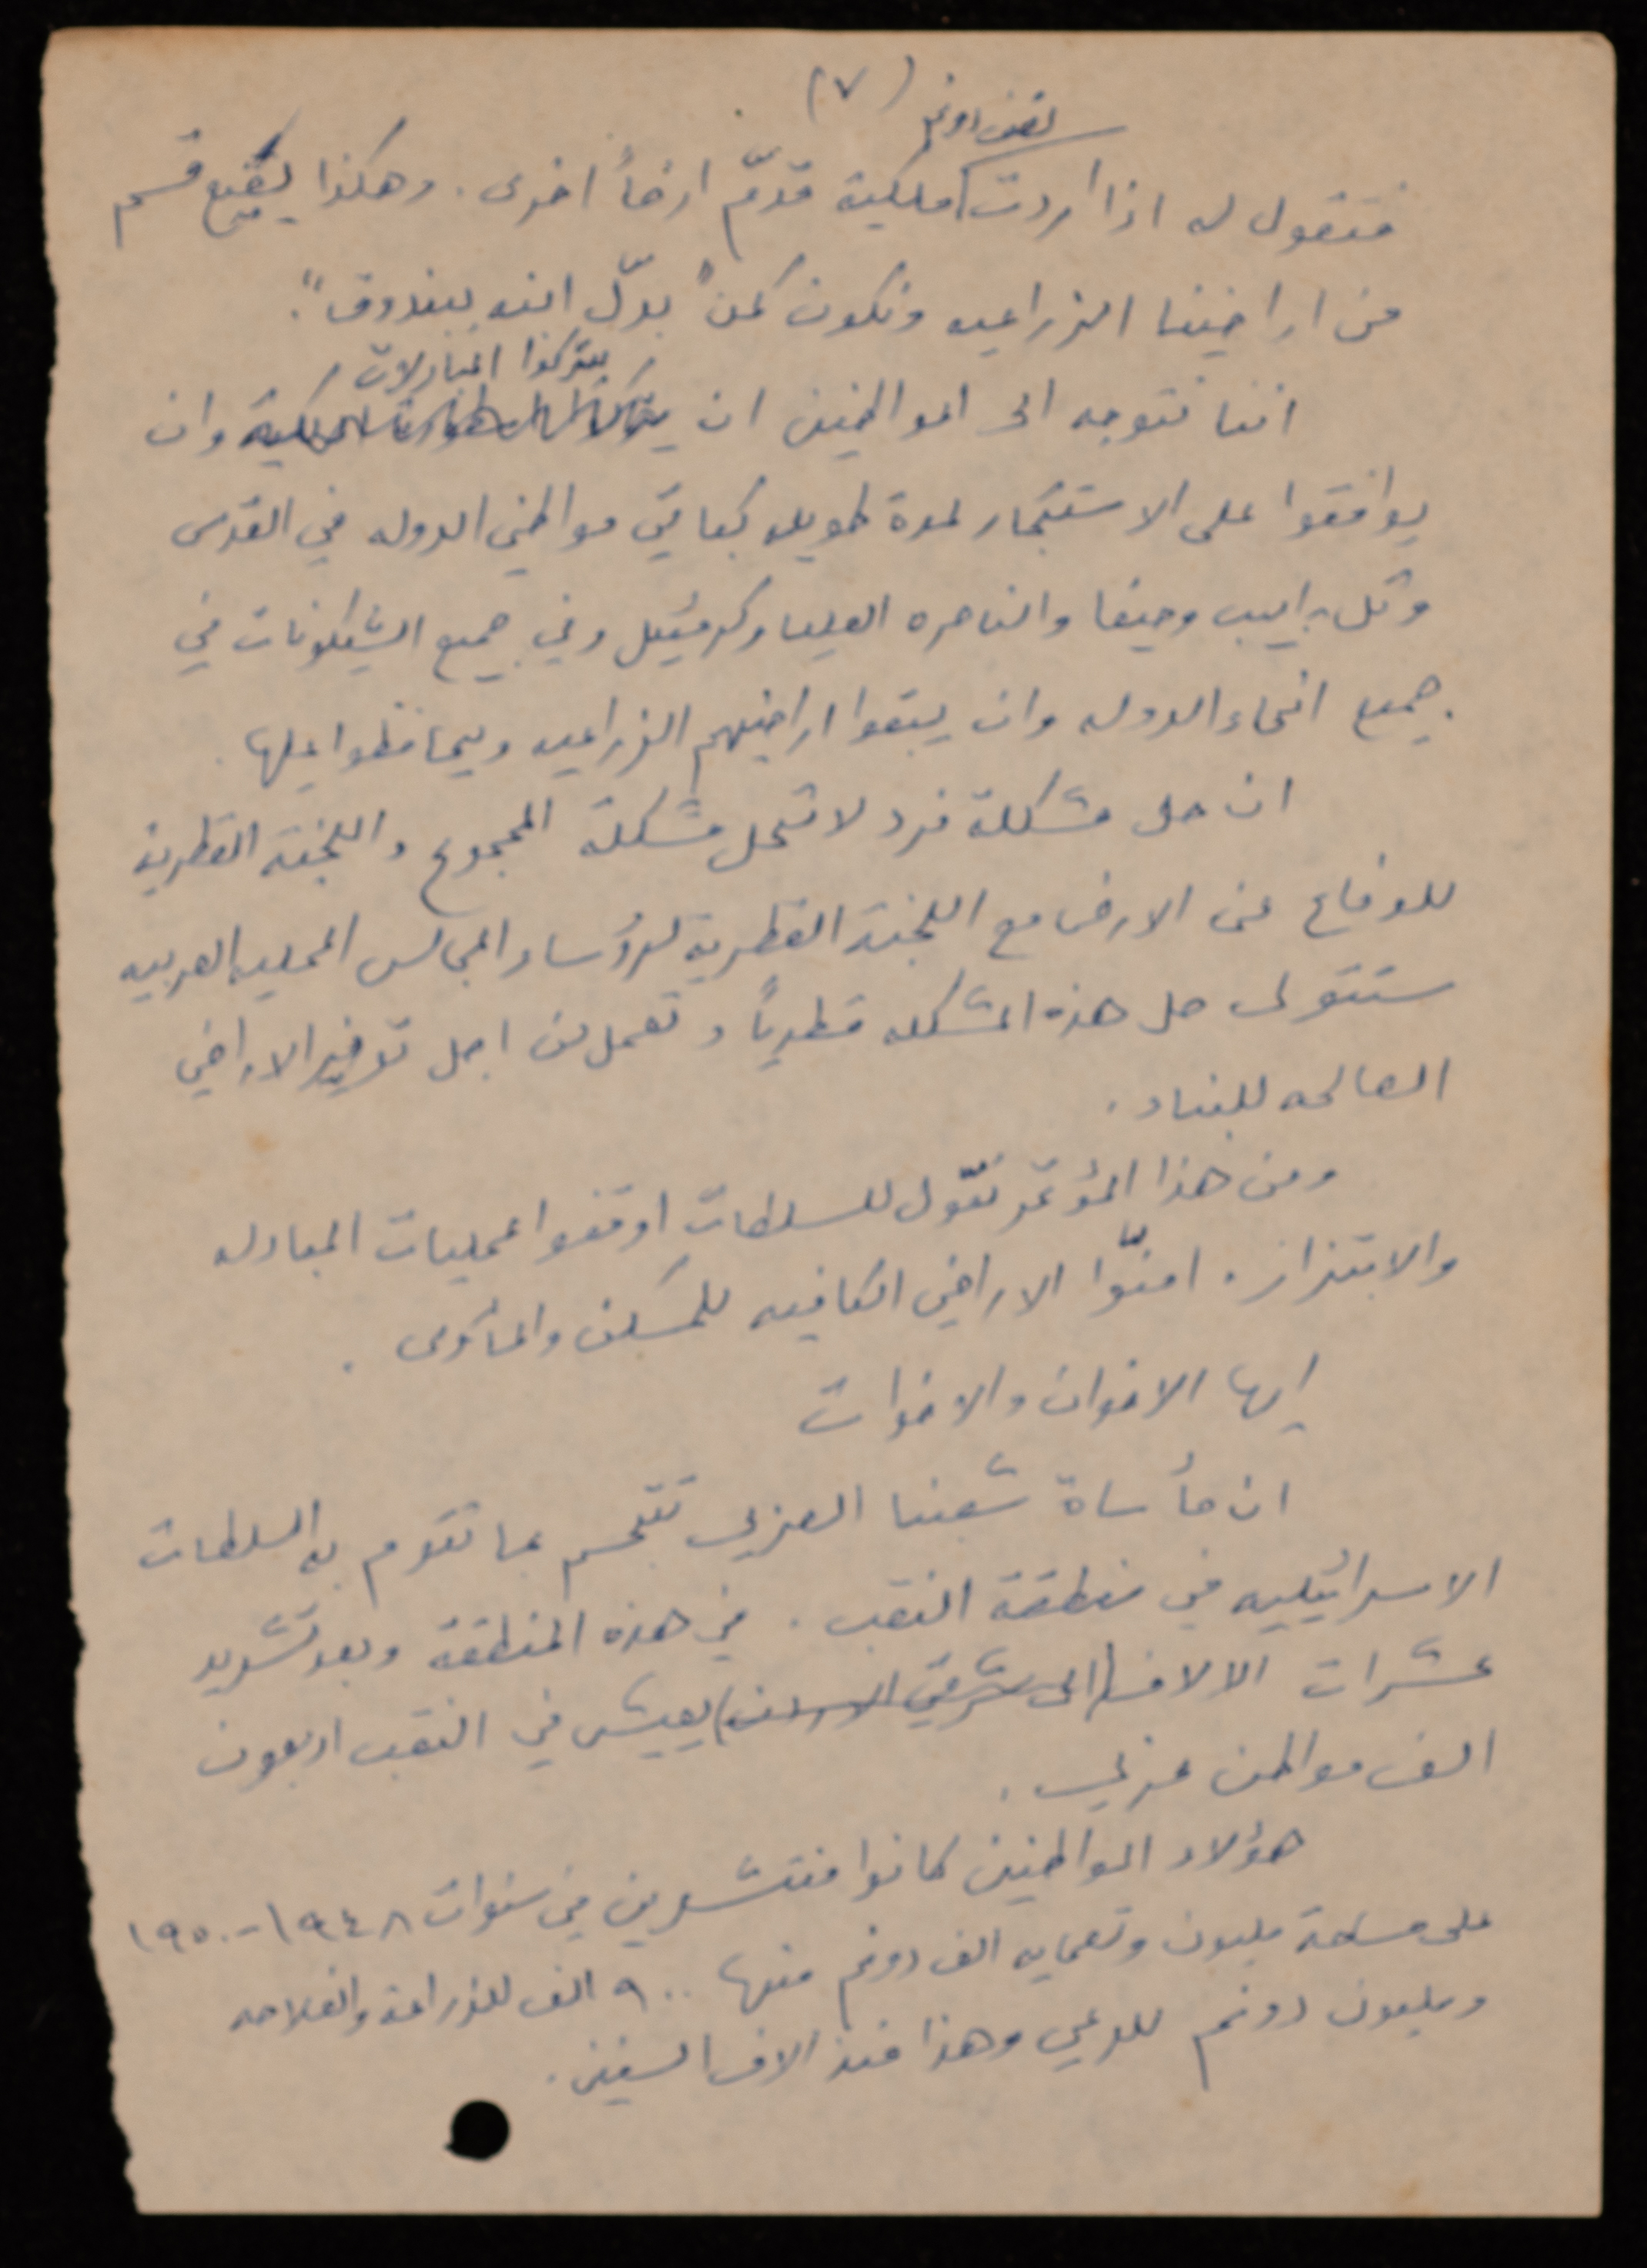 (٧)
نصف دونم
فتقول له اذا اردت ملكية قدّم ارضاً اخرى. وهكذا يضيع قسم
من اراضينا الزراعيه ونكون كمن "بدّل النه ببندوق".
يتركوا المبادلات
اننا نتوجه الى المواطنين ان وان
يوافقوا على الاستئجار لمدة طويله كباقي مواطني الدوله في القدس
وتل ابيب وحيفا والناصره العليا وكرميئيل وفي جميع الشيكونات في
جميع انحاء الدوله وان يبقوا اراضيهم الزراعيه ويحافظوا عليها.
ان حل مشكلة فرد لا تحل مشكلة المجموع واللجنة القطرية
للدفاع عن الارض مع اللجنة القطرية لرؤساء المجالس المحليه العربيه
ستتولى حل هذه المشكله قطرياً وتعمل من اجل توفير الاراضي
الصالحه للبناء.
ومن هذا المؤتمر نقول للسلطات اوقفوا عمليات المبادله
والابتزاز. امنّوا الاراضي الكافيه للمسكن والمأوى.
ايها الاخوان والاخوات
ان مأساة شعبنا العربي تتجسم بما تقوم به السلطات
الاسرائيليه في منطقة النقب. في هذه المنطقة وبعد تشريد
عشرات الالاف (الى شرقي الاردن) يعيش في النقب اربعون
الف مواطن عربي.
هؤلاء المواطنين كانوا منتشرين في سنوات ١٩٤٨-١٩٥٠
على مساحة مليون وتسعمايه الف دونم منها ٩٠٠ الف للزراعة والفلاحه
ومليون دونم للرعي وهذا منذ الاف السنين.